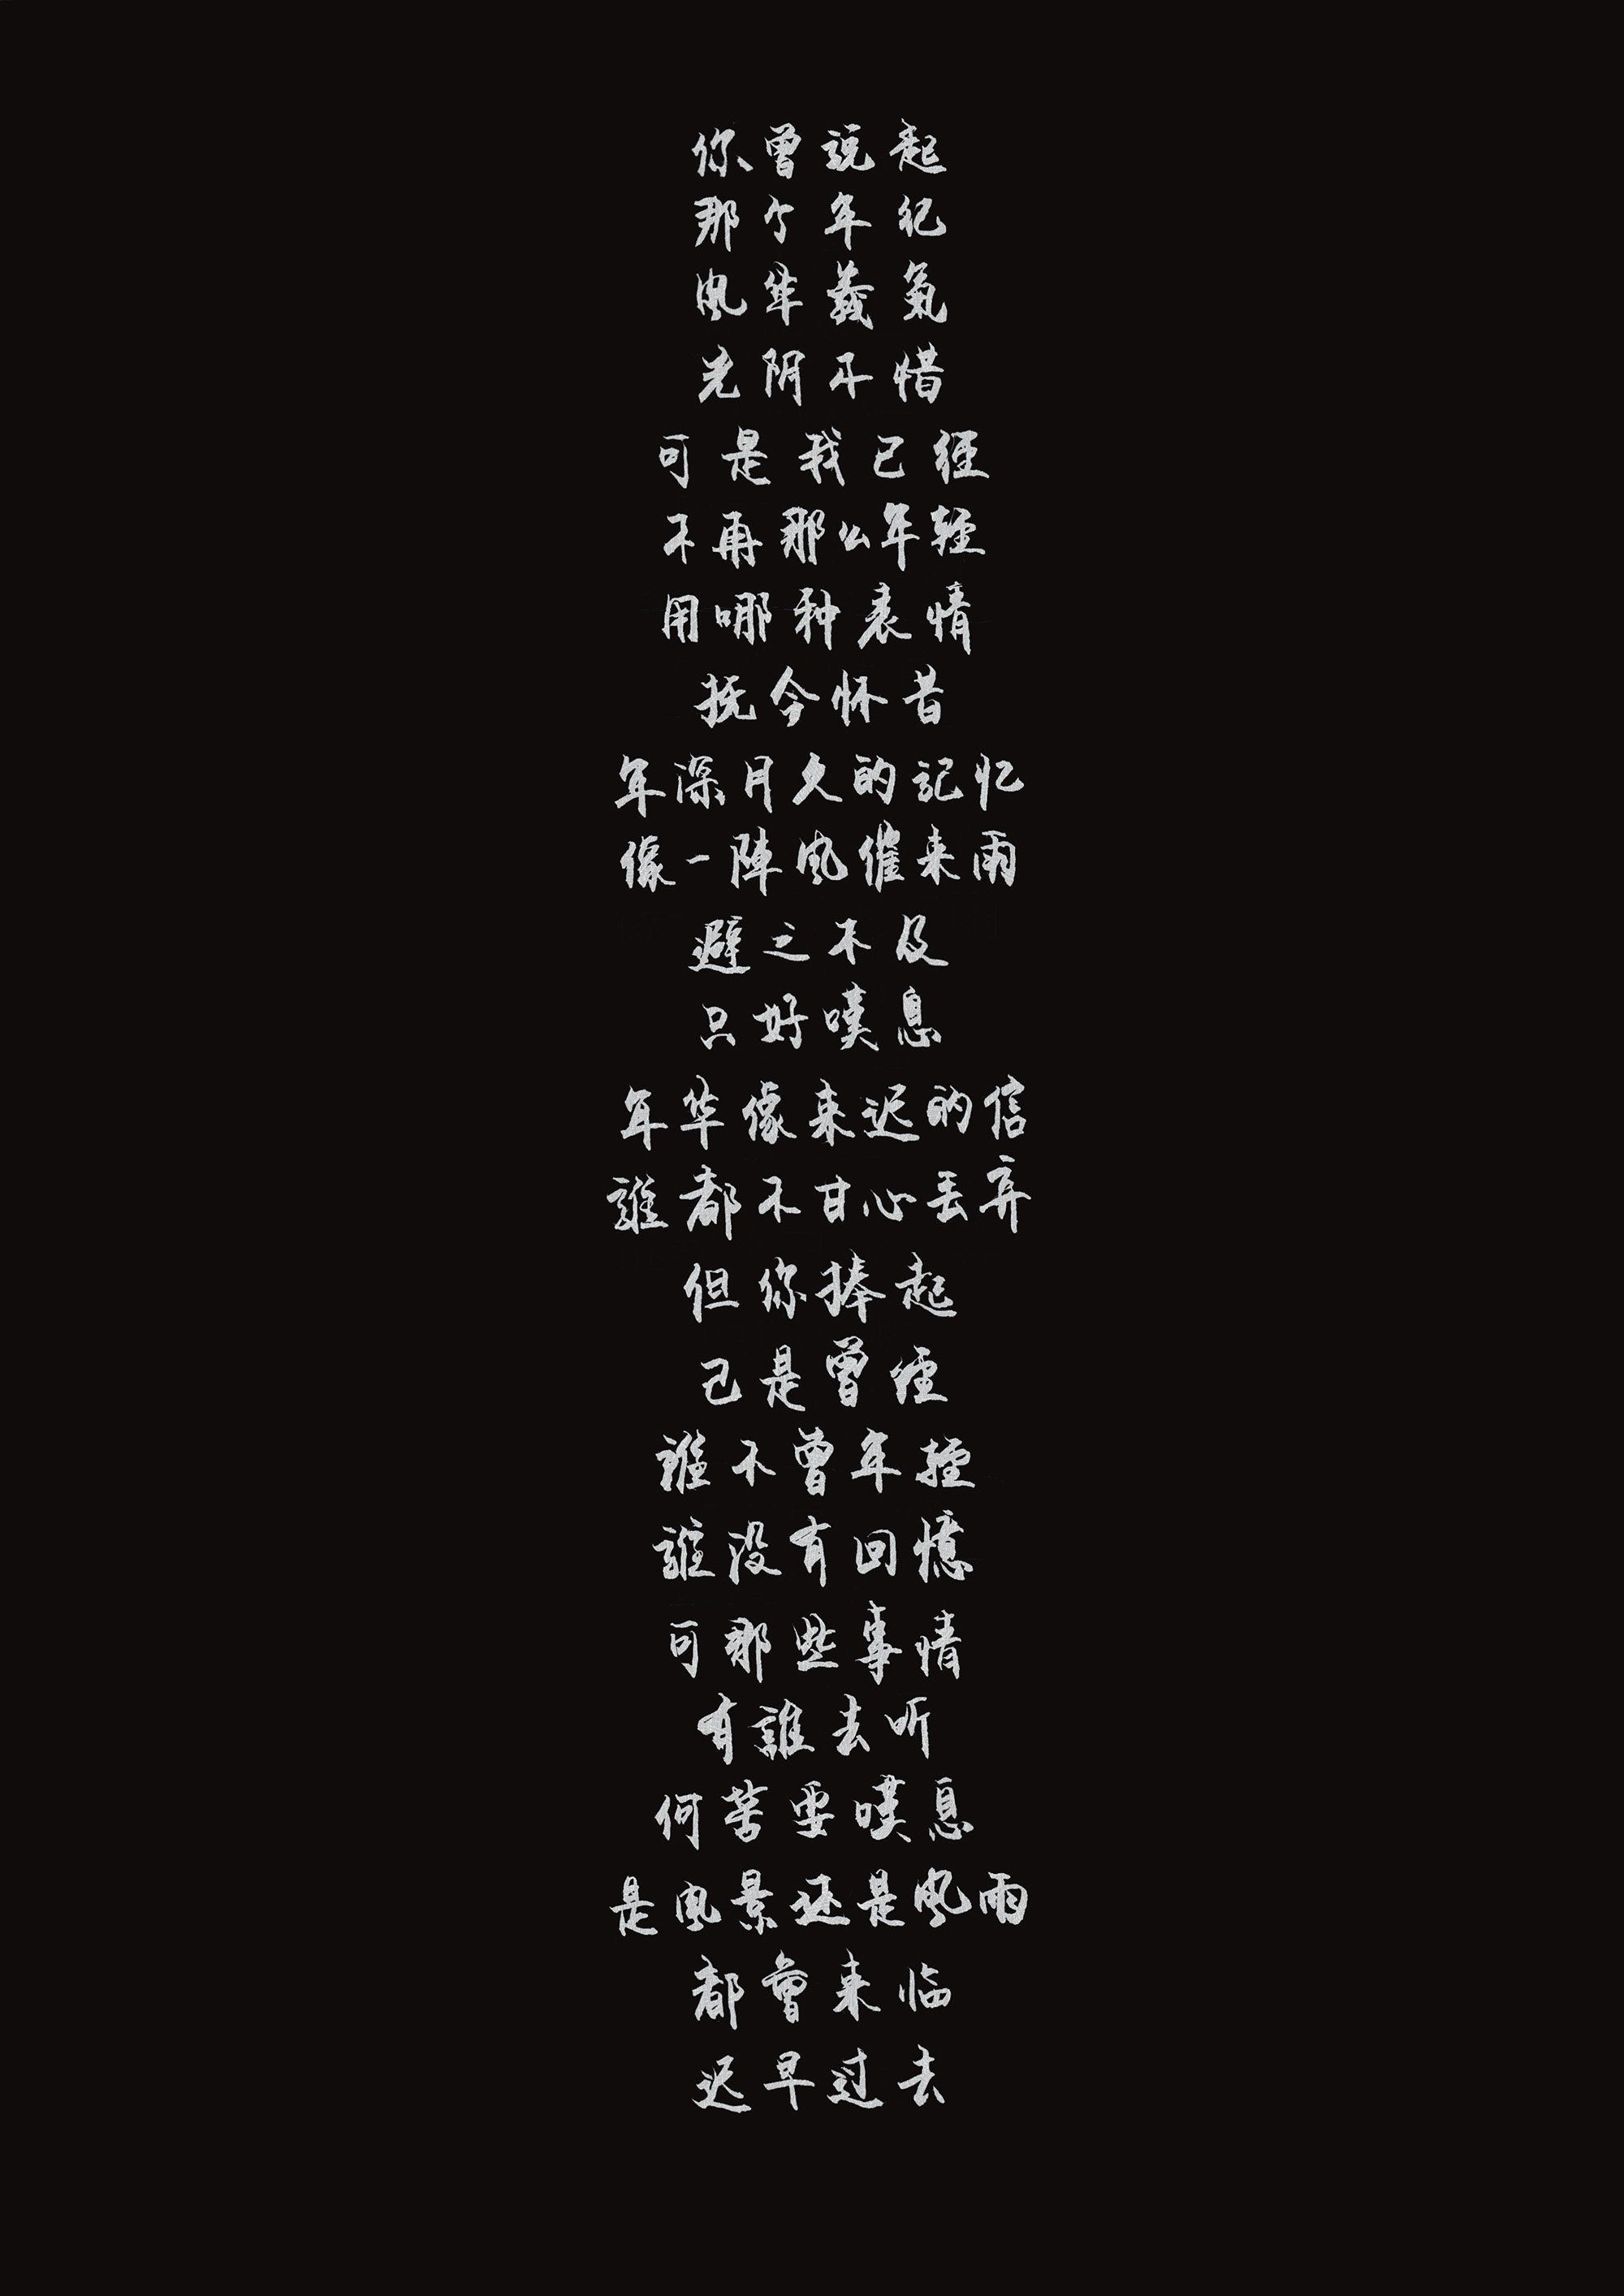 你曾说起
那个年纪
风华義氣
光阴不惜
可是我已经
不再那么年轻
用哪种表情
抚今怀昔
年深月久的記忆
像一陣风催来雨
避之不及
只好嘆息
年华像来迟的信
誰都不甘心丢弃
但你捧起
已是曾经
誰不曾年輕
誰没有回憶
可那些事情
有誰去听
何苦要嘆息
是风景还是风雨
都會来临
迟早过去